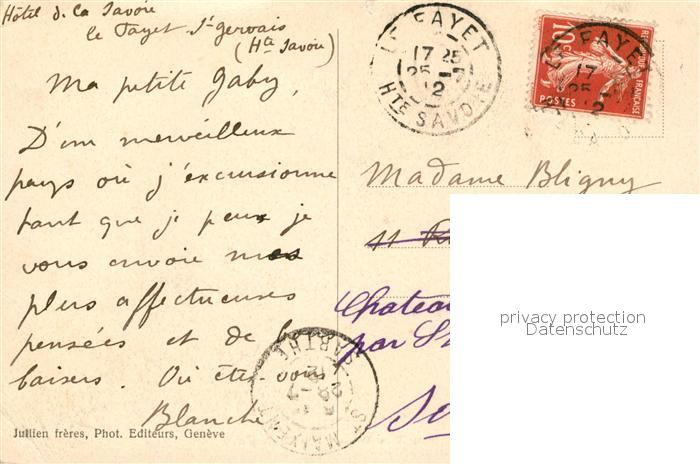 Hôtel de la Savoie
le Fayet St Gervais
(Hte Savoie)
Ma petite Gaby,
D'un merveilleux
pays où j'excursionne
tant que je peux je
vous envoie mes
plus affectueuses
pensées et de bons
baisers. Où êtes-vous
Blanche
Jullien frères, Phot. Editeurs, Genève
LE FAYET
17 25
25 -
12
HTE SAVOIE
LE FAYET
17
25 -
12
10c
REPUBLIQUE FRANÇAISE
POSTES
Madame Bligny
11
Chateau
par St
privacy protection
Datenschutz
ST MAIXENT
SARTHE